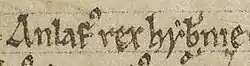 Anlaf rex hẏb̵nie